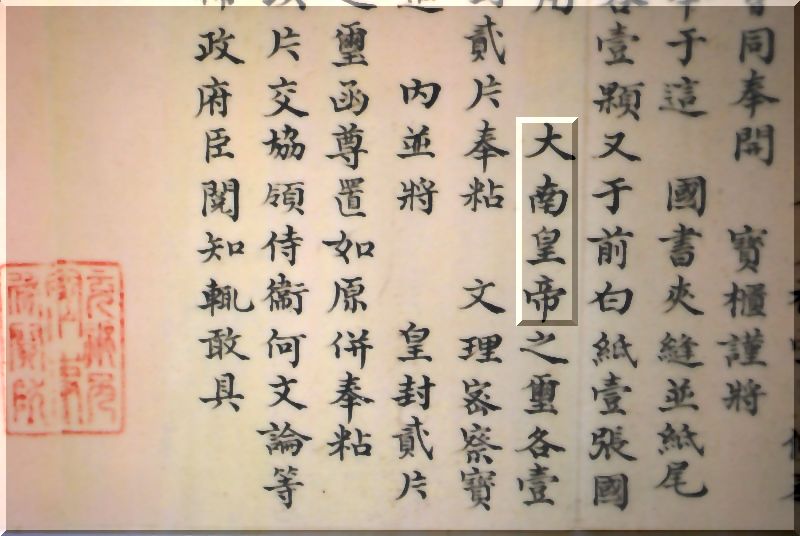 同奉開 寶櫃謹將
于這 國書夾縫並紙尾
壹顆又于前白紙壹張國
大南皇帝之璽各壹
貳片奉粘 文理密察寶
內並將 皇封貳片
璽函尊置如原併奉粘
片交協領侍衛何文論等
政府臣閱知輒敢具